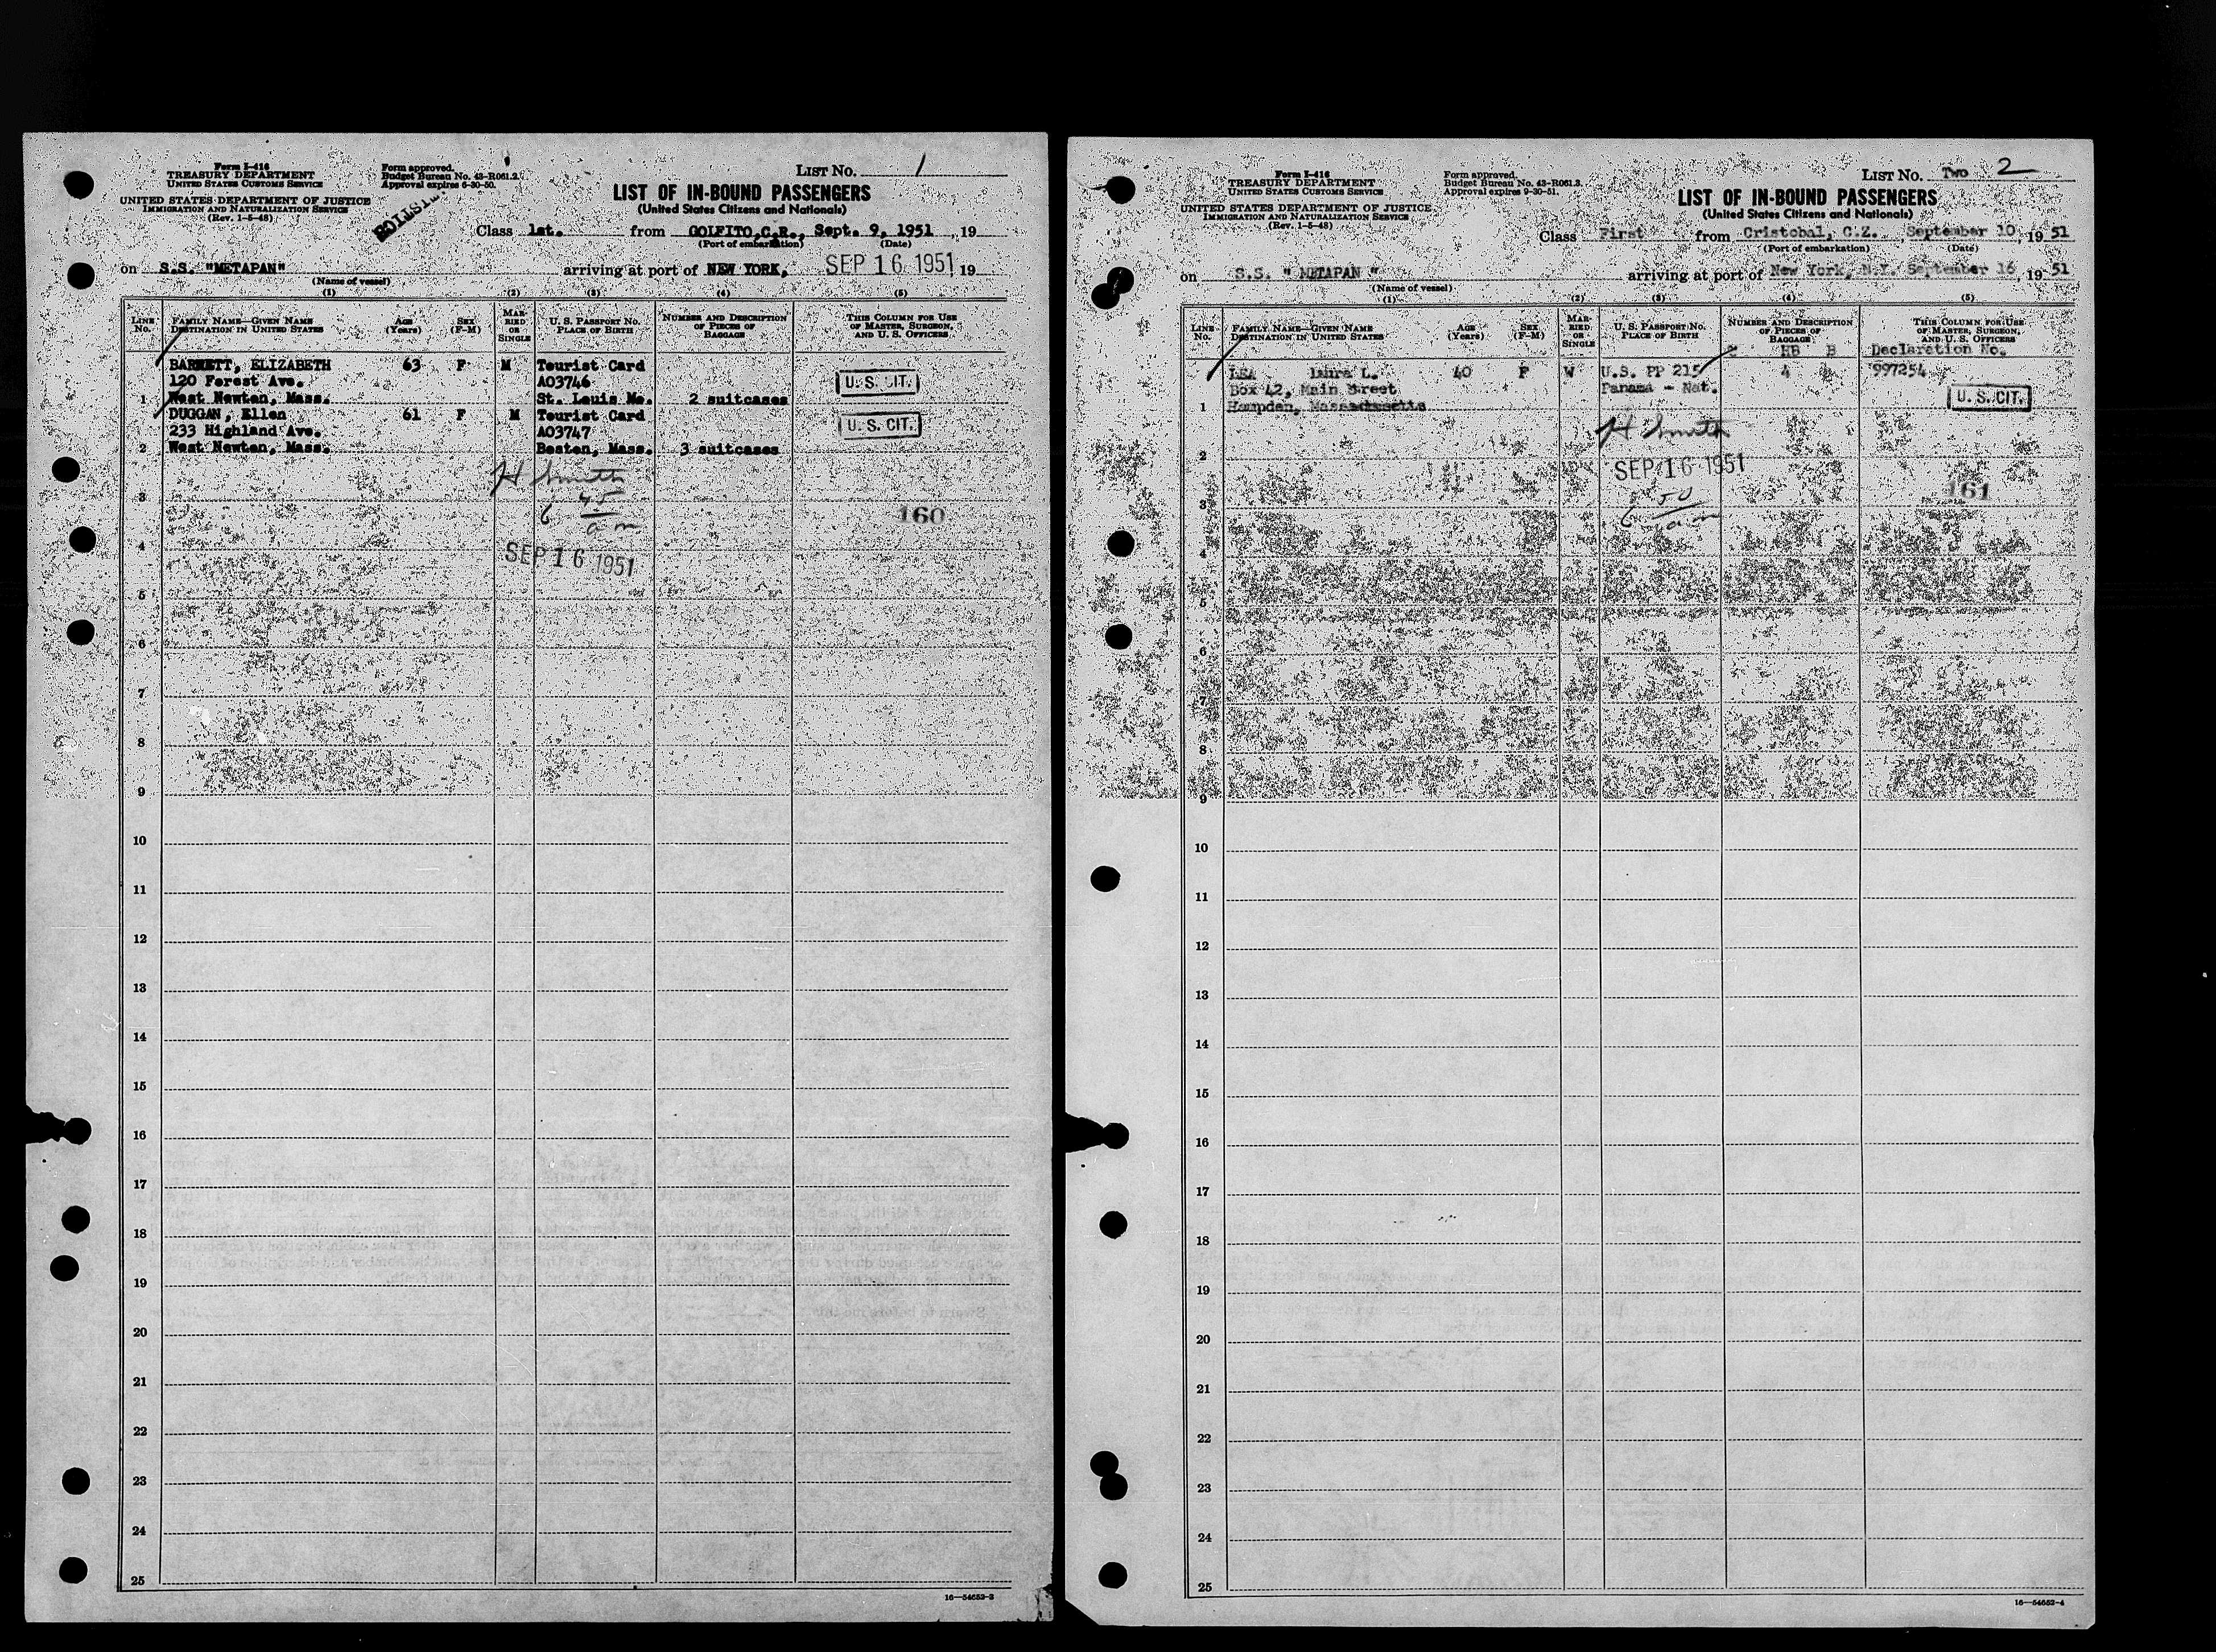 Form I-416
TREASURY DEPARTMENT
UNITED STATES CUSTOMS SERVICE
UNITED STATES DEPARTMENT OF JUSTICE
IMMIGRATION AND NATURALIZATION SERVICE
(Rev. 1-5-48)
Form approved.
Budget Bureau No. 43-R061.2.
Approval expires 6-30-50.
LIST NO. 1
LIST OF IN-BOUND PASSENGERS
(United States Citizens and Nationals)
Class 1st. from GOLFITO, C.R., Sept. 9, 1951, 19
(Port of embarkation) (Date)
on S.S. "METAPAN" arriving at port of NEW YORK, SEP 16 1951 19
(Name of vessel)
(1) (2) (3) (4) (5)
LINE No. FAMILY NAME—GIVEN NAME DESTINATION IN UNITED STATES AGE (Years) SEX (F-M) MARRIED OR SINGLE U. S. PASSPORT NO. PLACE OF BIRTH NUMBER AND DESCRIPTION OF PIECES OF BAGGAGE THIS COLUMN FOR USE OF MASTER, SURGEON, AND U. S. OFFICERS
BARRETT, ELIZABETH 63 F M Tourist Card
120 Forest Ave. A03746 U. S. CIT.
1 West Newton, Mass. St. Louis Mo. 2 suitcases
DUGGAN, Ellen 61 F M Tourist Card
233 Highland Ave. A03747 U. S. CIT.
2 West Newton, Mass. Boston, Mass. 3 suitcases
H Smith
3
6 45 am
160
4
SEP 16 1951
5
6
7
8
9
10
11
12
13
14
15
16
17
18
19
20
21
22
23
24
25
16—54652-3
Form I-416
TREASURY DEPARTMENT
UNITED STATES CUSTOMS SERVICE
UNITED STATES DEPARTMENT OF JUSTICE
IMMIGRATION AND NATURALIZATION SERVICE
(Rev. 1-5-48)
Form approved.
Budget Bureau No. 43-R061.3.
Approval expires 9-30-51.
LIST NO. Two 2
LIST OF IN-BOUND PASSENGERS
(United States Citizens and Nationals)
Class First from Cristobal, C.Z., September 10, 19 51
(Port of embarkation) (Date)
on S.S. " METAPAN " arriving at port of New York, N.Y. September 16, 19 51
(Name of vessel)
(1) (2) (3) (4) (5)
LINE No. FAMILY NAME—GIVEN NAME DESTINATION IN UNITED STATES AGE (Years) SEX (F-M) MARRIED OR SINGLE U. S. PASSPORT NO. PLACE OF BIRTH NUMBER AND DESCRIPTION OF PIECES OF BAGGAGE THIS COLUMN FOR USE OF MASTER, SURGEON, AND U. S. OFFICERS
HB B Declaration No.
LEA L. 40 F W U.S. PP 215 4 997254
Box 42, Main Street Panama - Nat.
1 Hampden, Massachusetts U. S. CIT.
H Smith
2
SEP 16 1951
161
3
6 50 am
4
5
6
7
8
9
10
11
12
13
14
15
16
17
18
19
20
21
22
23
24
25
16—54652-4